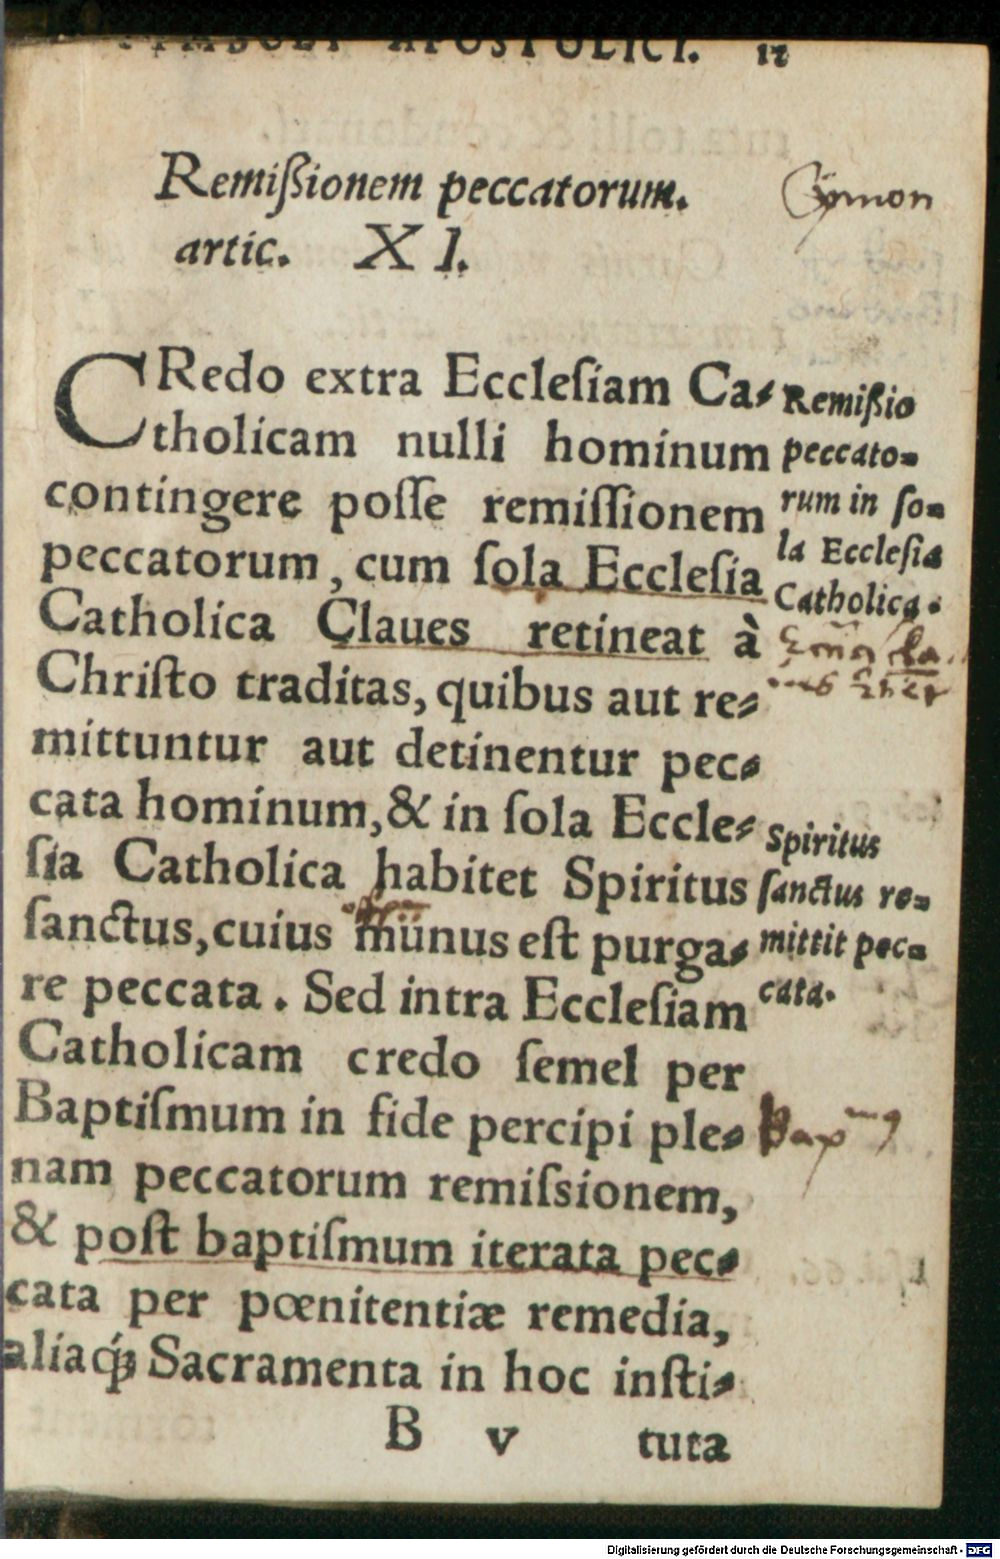 SYMBOLI APOSTOLICI. 12
Remißionem peccatorum.
artic. XI.
CRedo extra Eccleſiam Ca-
tholicam nulli hominum
contingere poſſe remiſſionem
peccatorum, cum ſola Eccleſia
Catholica Claues retineat à
Chriſto traditas, quibus aut re-
mittuntur aut detinentur pec-
cata hominum, & in ſola Eccle-
ſia Catholica habitet Spiritus
ſanctus, cuius munus eſt purga-
re peccata. Sed intra Eccleſiam
Catholicam credo ſemel per
Baptiſmum in fide percipi ple-
nam peccatorum remiſsionem,
& poſt baptiſmum iterata pec-
cata per pœnitentiæ remedia,
aliaq́ꝫ Sacramenta in hoc inſti-
B v tuta
Remißio
peccato-
rum in ſo-
la Eccleſia
Catholica.
Spiritus
ſanctus re-
mittit pec-
cata.
Digitalisierung gefördert durch die Deutsche Forschungsgemeinschaft - DFG